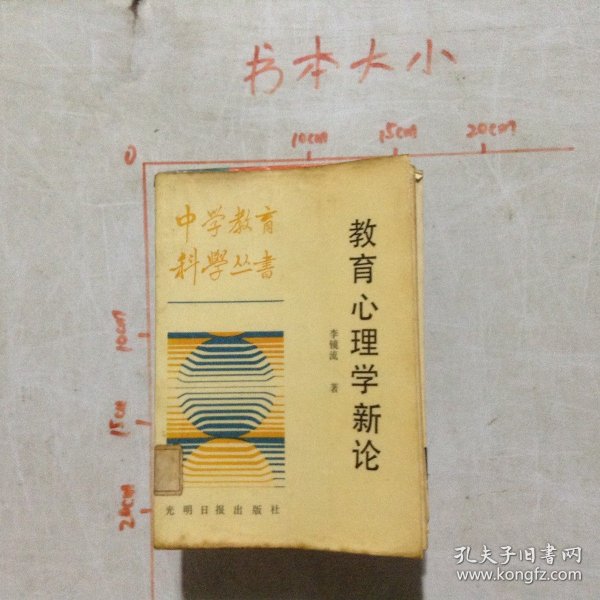 书本大小
0
10cm
15cm
20cm
10cm
15cm
20cm
中学教育
科學丛書
教育心理学新论
李镜流 著
光明日报出版社
孔夫子旧书网
www.kongfz.com